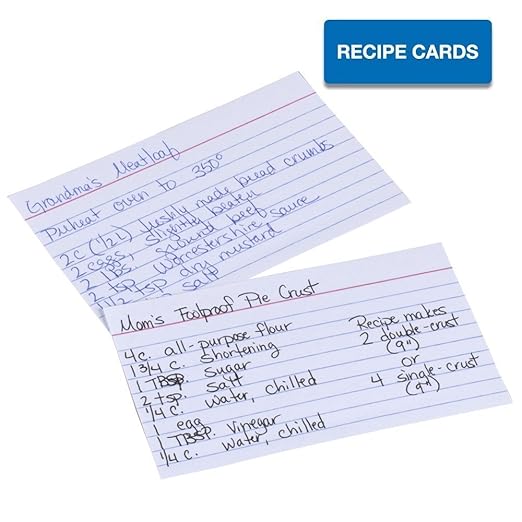 RECIPE CARDS
Grandma's Meatloaf
Preheat oven to 350°
2c (1/2L) freshly made bread crumbs
2 eggs, slightly beaten
2 lbs. ground beef
2 tsp. Worcestershire sauce
1 1/2 tsp dry mustard
salt
Mom's Foolproof Pie Crust
4c. all-purpose flour
1 3/4 c. Shortening
1 TBSP. Sugar
2 tsp. Salt
1/4 c. water, chilled
1 egg
1 TBSP. Vinegar
1/4 c. water, chilled
Recipe makes
2 double-crust
(9")
or
4 single-crust
(9")